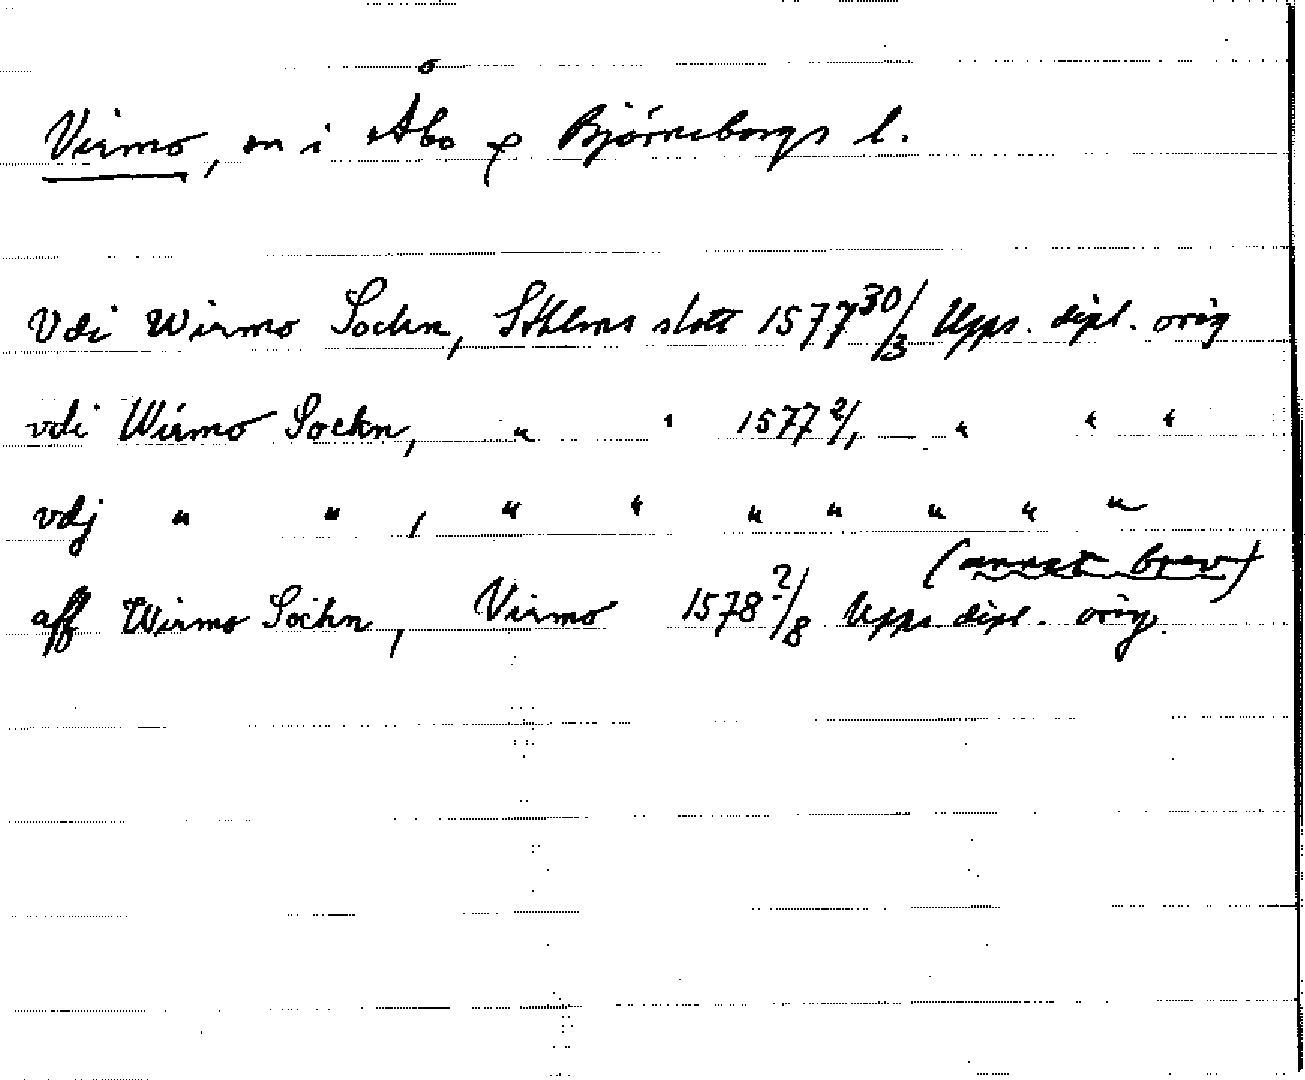 Virmo, sn i Åbo o Björneborgs l.
Vdi Wirmo Sochn, Sthlms slott 1577 30/3 Upps. dipl. orig
vdi Wirmo Sockn, " " 1577 2/1 — " " "
vdj " " , " " " " " " "
(annat brev)
aff Wirmo Sochn, Virmo 1578 ?/8 Upps. dipl. orig.